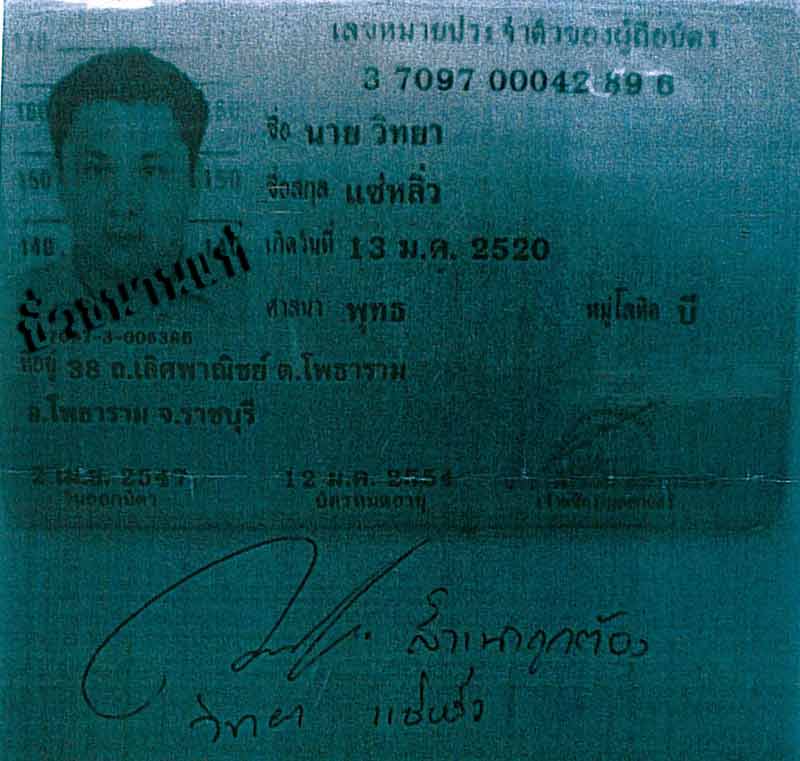 เลขหมายประจำตัวของผู้ถือบัตร
3 7097 00042 89 6
ชื่อ นาย วิทยา
ชื่อสกุล แซ่หลิ่ว
เกิดวันที่ 13 ม.ค. 2520
ศาสนา พุทธ หมู่โลหิต บี
ที่อยู่ 38 ถ.เลิศพาณิชย์ ต.โพธาราม
อ.โพธาราม จ.ราชบุรี
2 เม.ย. 2547 12 ม.ค. 2554
วันออกบัตร บัตรหมดอายุ
สำเนาถูกต้อง
วิทยา แซ่หลิ่ว